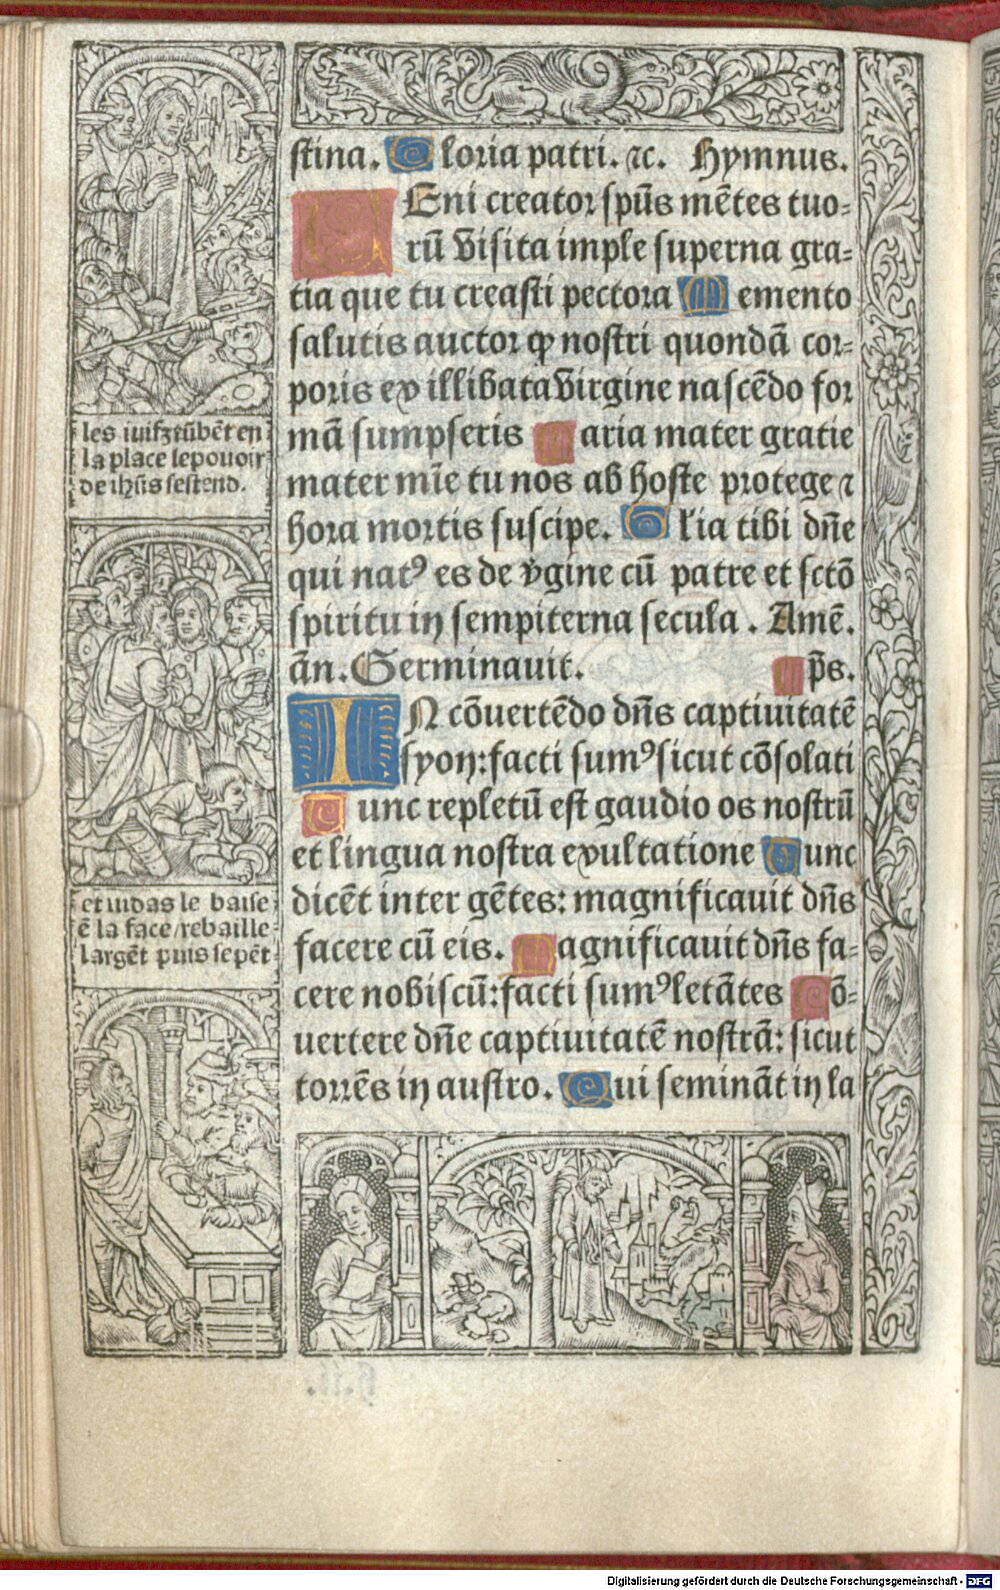 stina. Gloria patri. ⁊c. Hymnus.
VEni creator spūs mētes tuo⸗
rū visita imple superna gra⸗
tia que tu creasti pectora Memento
salutis auctor ꝙ nostri quondā cor⸗
poris ex illibata virgine nascēdo for
mā sumpseris Maria mater gratie
mater mīe tu nos ab hoste protege ⁊
hora mortis suscipe. Gl'ia tibi dñe
qui natꝰ es de v̾gine cū patre et sctō
spiritu in sempiterna secula. Amē.
ān. Germinavit. ps̄.
IN cōuertēdo dñs captiuitatē
syon: facti sumꝰ sicut cōsolati
Tunc repletū est gaudio os nostrū
et lingua nostra exultatione Tunc
dicēt inter gētes: magnificauit dñs
facere cū eis. Magnificauit dñs fa⸗
cere nobiscū: facti sumꝰ letātes Cō⸗
uertere dñe captiuitatē nostrā: sicut
torrēs in austro. Qui semināt in la
les iuifz tūbēt en
la place le pouoir
de ihūs sestend.
et iudas le baise
ē la face / rebaille
largēt puis se pēt
Digitalisierung gefördert durch die Deutsche Forschungsgemeinschaft - DFG